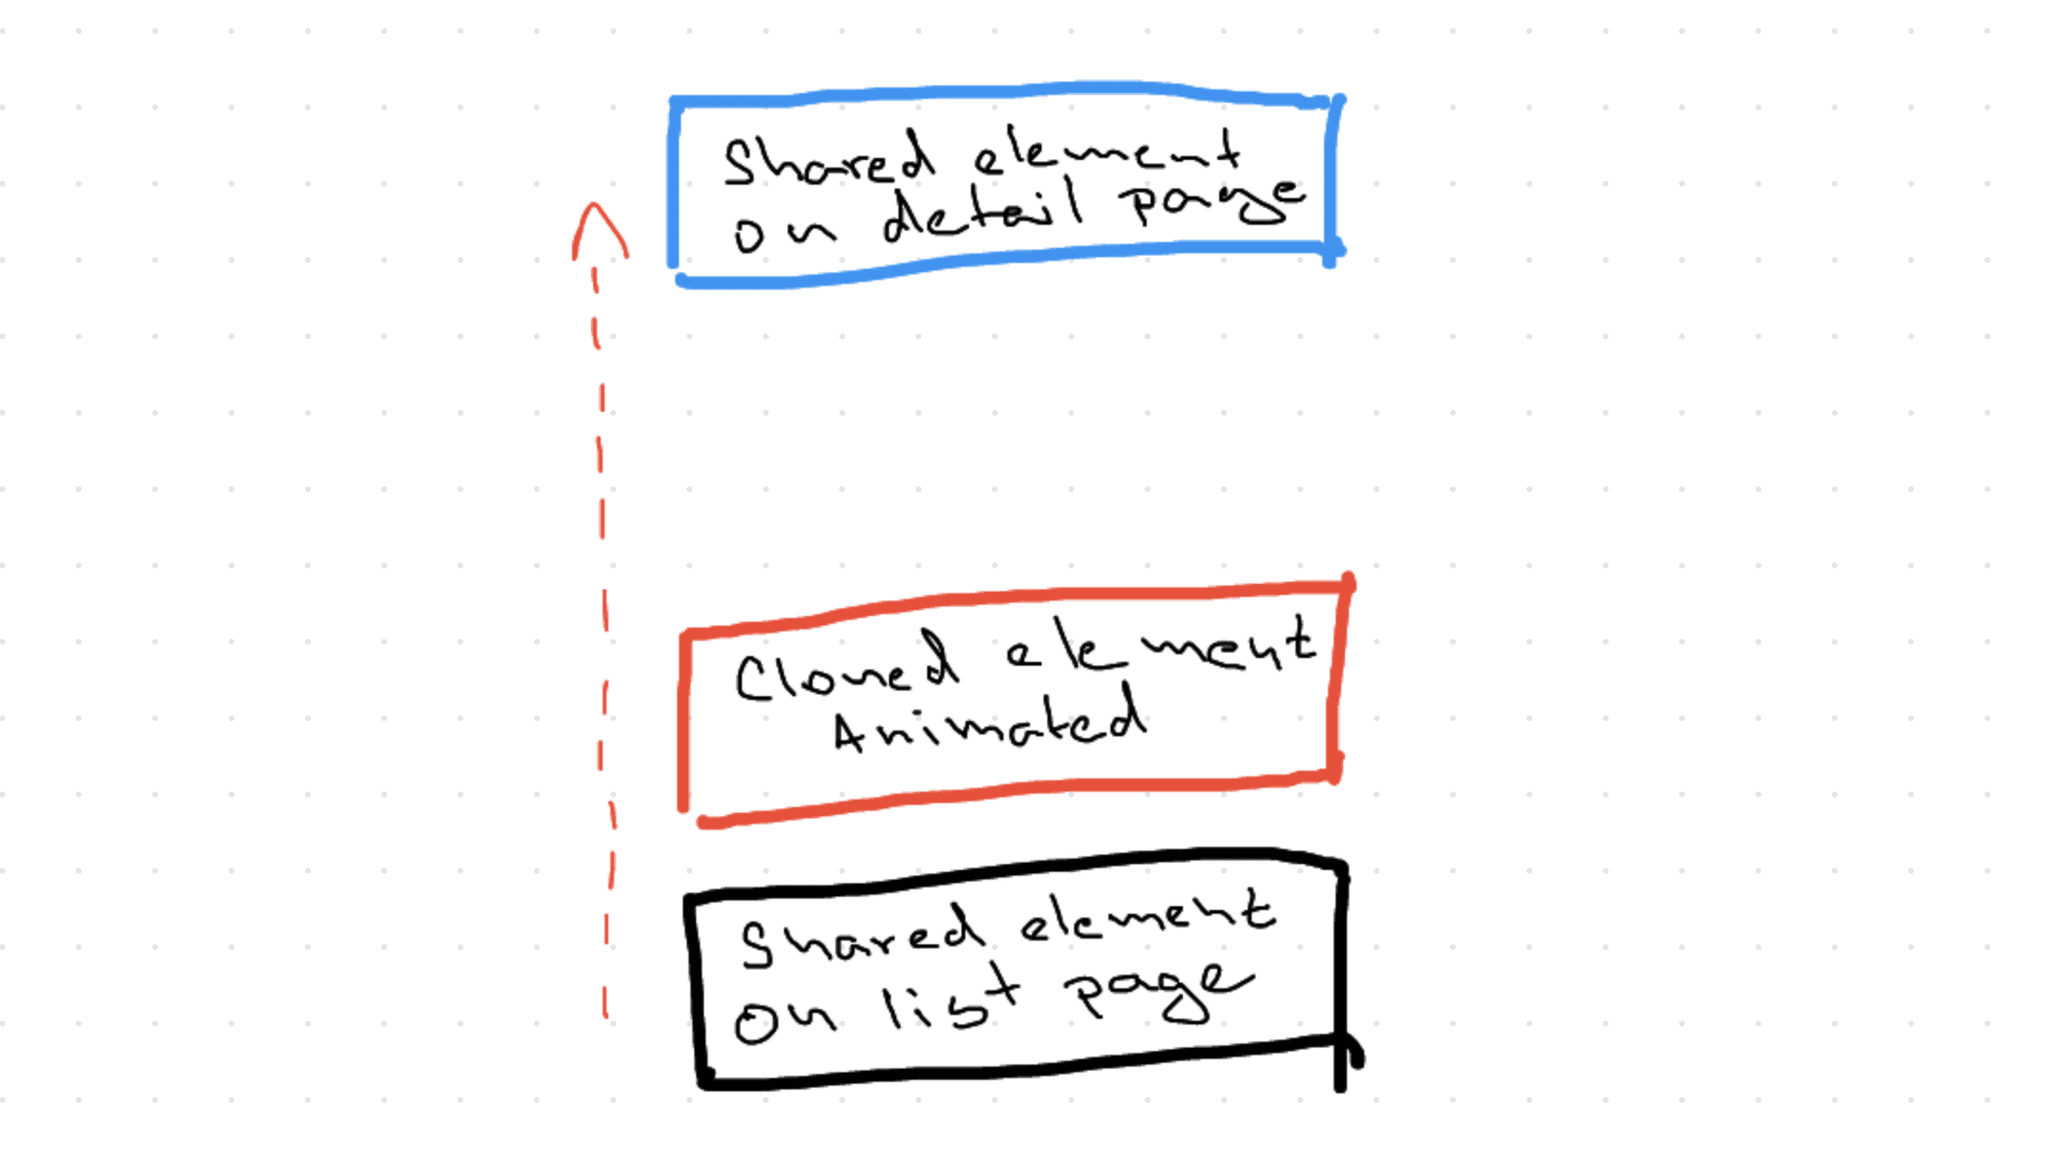 Shared element
on detail page
Cloned element
Animated
Shared element
on list page